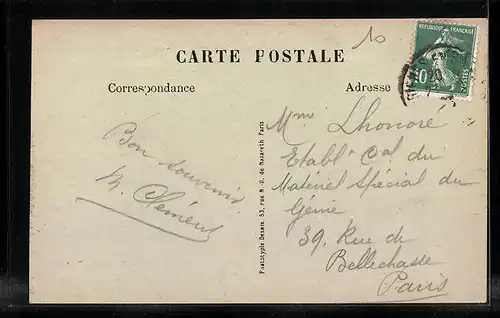 10
CARTE POSTALE
RÉPUBLIQUE FRANÇAISE
10
POSTES
Correspondance
Adresse
Bon souvenir.
M. Clément
Phototypie Desaix, 53, rue N.-D. de Nazareth Paris
Mme Lhonoré
Etablt Cal du
Matériel Spécial du
Génie
39, Rue de
Bellechasse
Paris